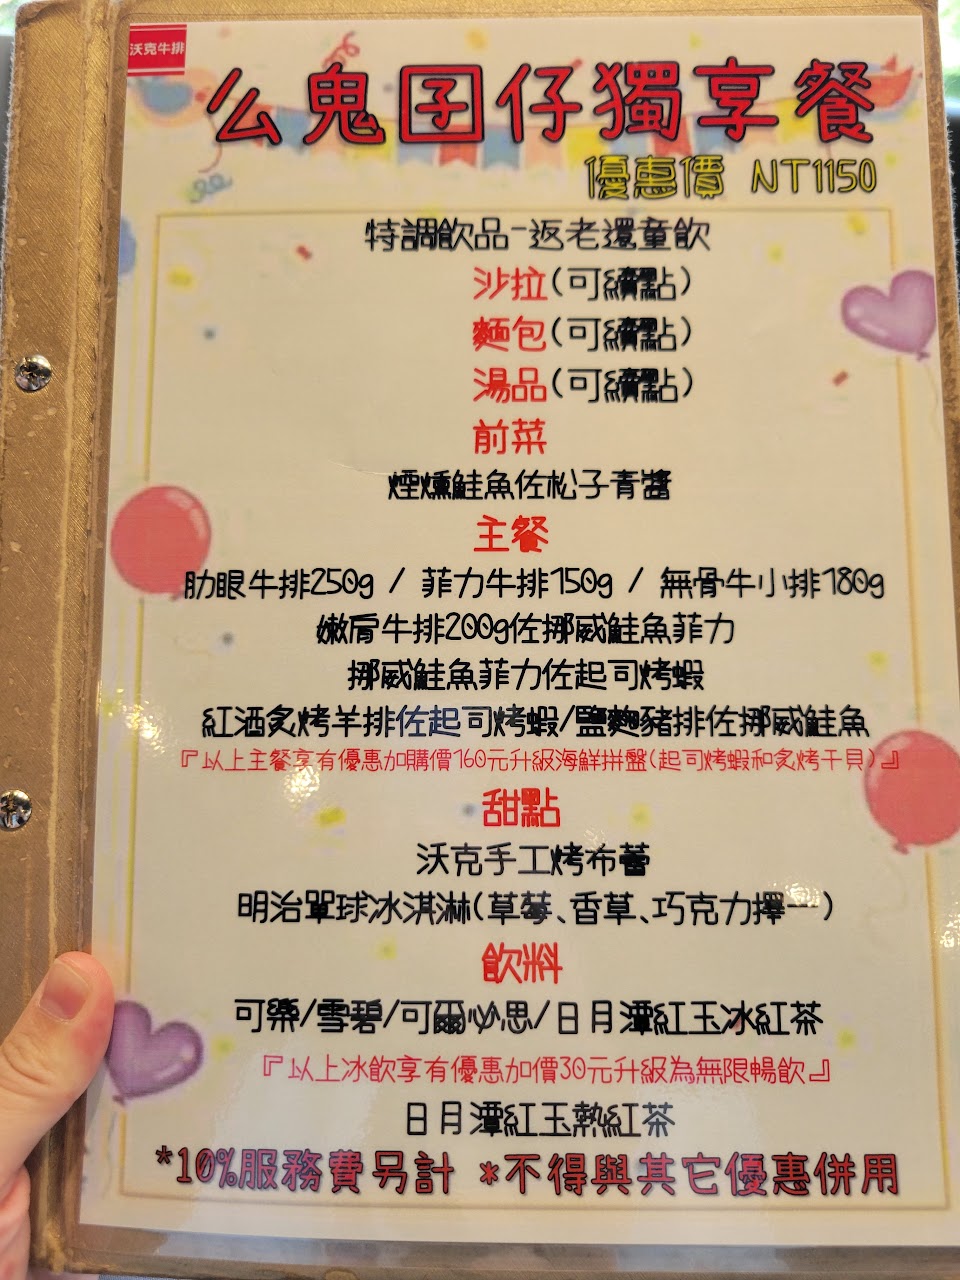 沃克牛排
么鬼囝仔獨享餐
優惠價 NT1150
特調飲品-返老還童飲
沙拉(可續點)
麵包(可續點)
湯品(可續點)
前菜
煙燻鮭魚佐松子青醬
主餐
肋眼牛排250g / 菲力牛排150g / 無骨牛小排180g
嫩肩牛排200g佐挪威鮭魚菲力
挪威鮭魚菲力佐起司烤蝦
紅酒炙烤羊排佐起司烤蝦/鹽麴豬排佐挪威鮭魚
『以上主餐享有優惠加購價160元升級海鮮拼盤(起司烤蝦和炙烤干貝)』
甜點
沃克手工烤布蕾
明治單球冰淇淋(草莓、香草、巧克力擇一)
飲料
可樂/雪碧/可爾必思/日月潭紅玉冰紅茶
『以上冰飲享有優惠加價30元升級為無限暢飲』
日月潭紅玉熱紅茶
*10%服務費另計 *不得與其它優惠併用